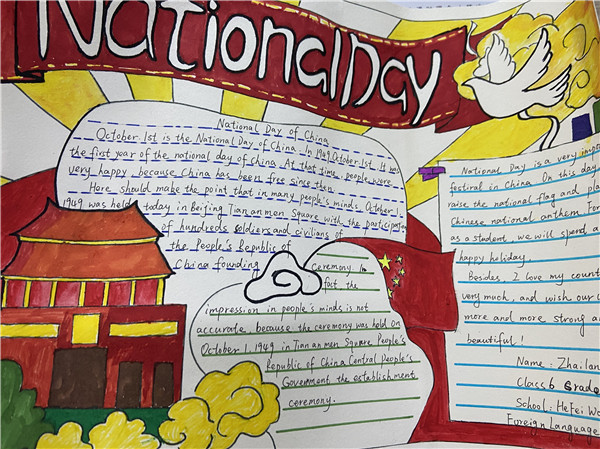 National Day
National Day of China
October 1st is the National Day of China. In 1949, October 1st. It was
the first year of the national day of china. At that time, people were
very happy, because China has been free since then.
Here should make the point that in many people's minds, October 1,
1949 was held today in Beijing Tiananmen Square with the participation
of hundreds soldiers and civilians of
the People's Republic of
China founding
ceremony. In
fact the
impression in people's minds is not
accurate, because the ceremony was held on
October 1, 1949 in Tinnanmen Square People's
Republic of China Central People's
Government the establishment
ceremony.
National Day is a very
festival in China. On this day
raise the national flag and
Chinese national anthem.
as a student, we will spend a
happy holiday.
Besides, I love my
very much, and wish our
more and more strong
beautiful!
Name:
Class 6 Grade
School: HeFei
Foreign Language